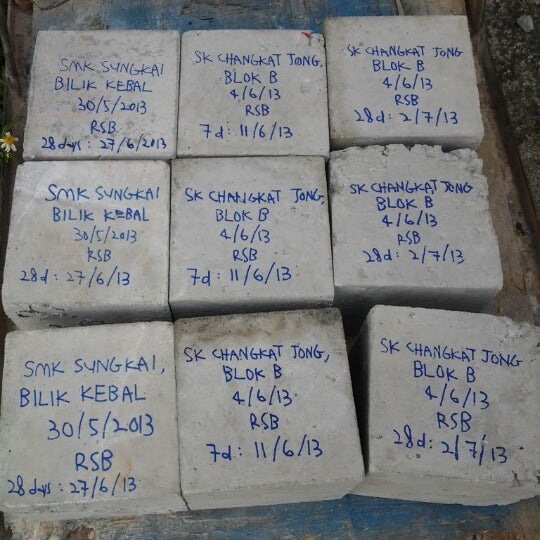 SMK SUNGKAI
BILIK KEBAL
30/5/2013
RSB
28 days : 27/6/2013
SK CHANGKAT JONG,
BLOK B
4/6/13
RSB
7d : 11/6/13
SK CHANGKAT JONG
BLOK B
4/6/13
RSB
28d : 2/7/13
SMK SUNGKAI
BILIK KEBAL
30/5/2013
RSB
28d : 27/6/13
SK CHANGKAT JONG,
BLOK B
4/6/13
RSB
7d : 11/6/13
SK CHANGKAT JONG
BLOK B
4/6/13
RSB
28d : 2/7/13
SMK SUNGKAI,
BILIK KEBAL
30/5/2013
RSB
28 days : 27/6/13
SK CHANGKAT JONG,
BLOK B
4/6/13
RSB
7d : 11/6/13
SK CHANGKAT JONG
BLOK B
4/6/13
RSB
28d : 2/7/13